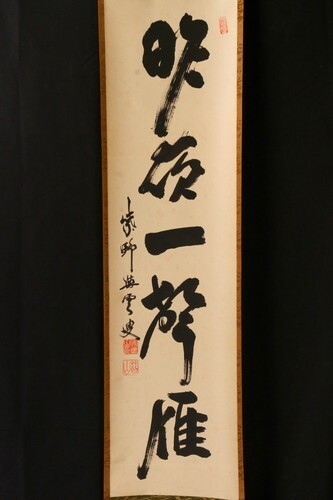 昨夜一聲雁
紫野興雲叟